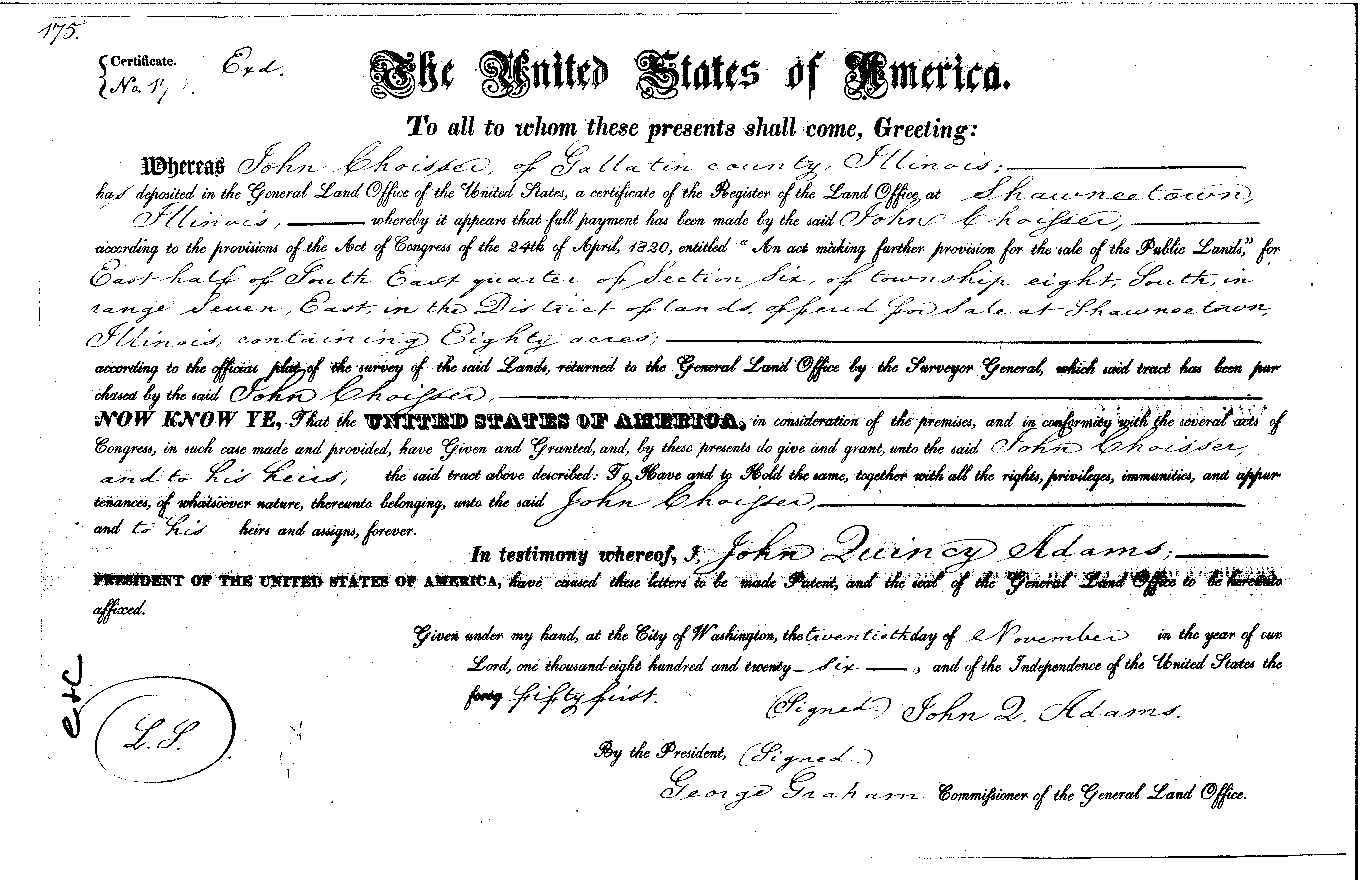 175.
Certificate. Exd. The United States of America.
No.
To all to whom these presents shall come, Greeting:
Whereas John Choisser, of Gallatin county, Illinois;
has deposited in the General Land Office of the United States, a certificate of the Register of the Land Office at Shawneetown,
Illinois, whereby it appears that full payment has been made by the said John Choisser,
according to the provisions of the Act of Congress of the 24th of April, 1820, entitled "An act making further provision for the sale of the Public Lands," for
East half of South East quarter of Section Six, of township eight, South, in
range Seven, East, in the District of lands offered for Sale at Shawneetown,
Illinois, containing Eighty acres;
according to the official plat of the survey of the said Lands, returned to the General Land Office by the Surveyor General, which said tract has been pur
chased by the said John Choisser,
NOW KNOW YE, That the UNITED STATES OF AMERICA, in consideration of the premises, and in conformity with the several acts of
Congress, in such case made and provided, have Given and Granted, and, by these presents do give and grant, unto the said John Choisser,
and to his heirs, the said tract above described: To Have and to Hold the same, together with all the rights, privileges, immunities, and appur
tenances, of whatsoever nature, thereunto belonging, unto the said John Choisser,
and to his heirs and assigns, forever.
In testimony whereof, I, John Quincy Adams,
PRESIDENT OF THE UNITED STATES OF AMERICA, have caused these letters to be made Patent, and the seal of the General Land Office to be hereunto
affixed.
Given under my hand, at the City of Washington, the twentieth day of November in the year of our
Lord, one thousand eight hundred and twenty six, and of the Independence of the United States the
fifty first.
(Signed) John Q. Adams.
L.S.
By the President, (Signed)
George Graham Commissioner of the General Land Office.